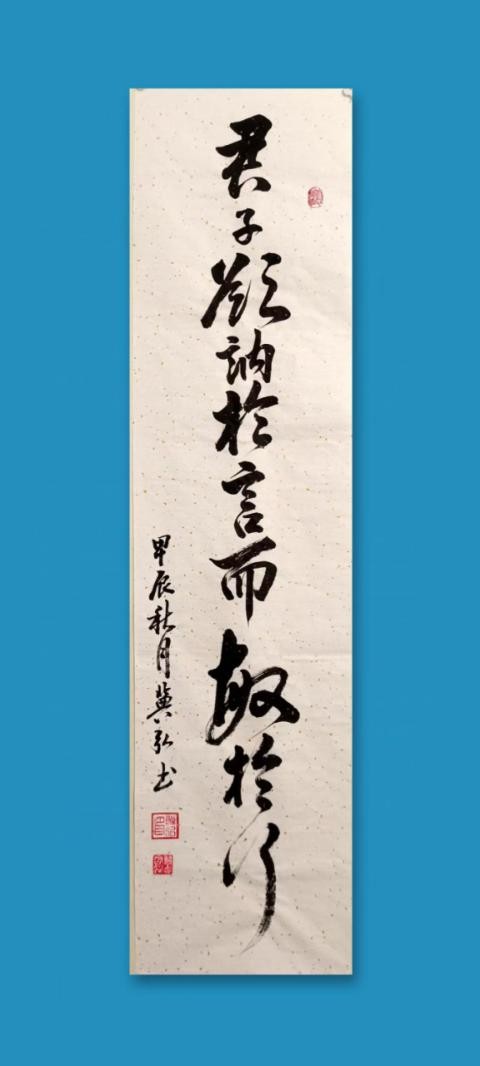 君子欲訥於言而敏於行
甲辰秋月黄弘书